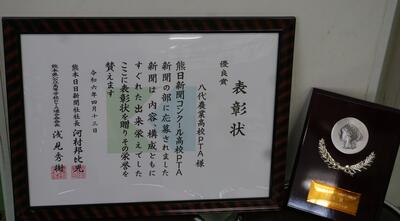 表彰状
優良賞
八代農業高校PTA様
熊日新聞コンクール高校PTA
新聞の部に応募されました
新聞は内容・構成ともに
すぐれた出来栄えでした
ここに表彰状を贈りその栄誉を
讃えます
令和六年四月十三日
熊本日日新聞社社長 河村邦比児
浅見秀樹